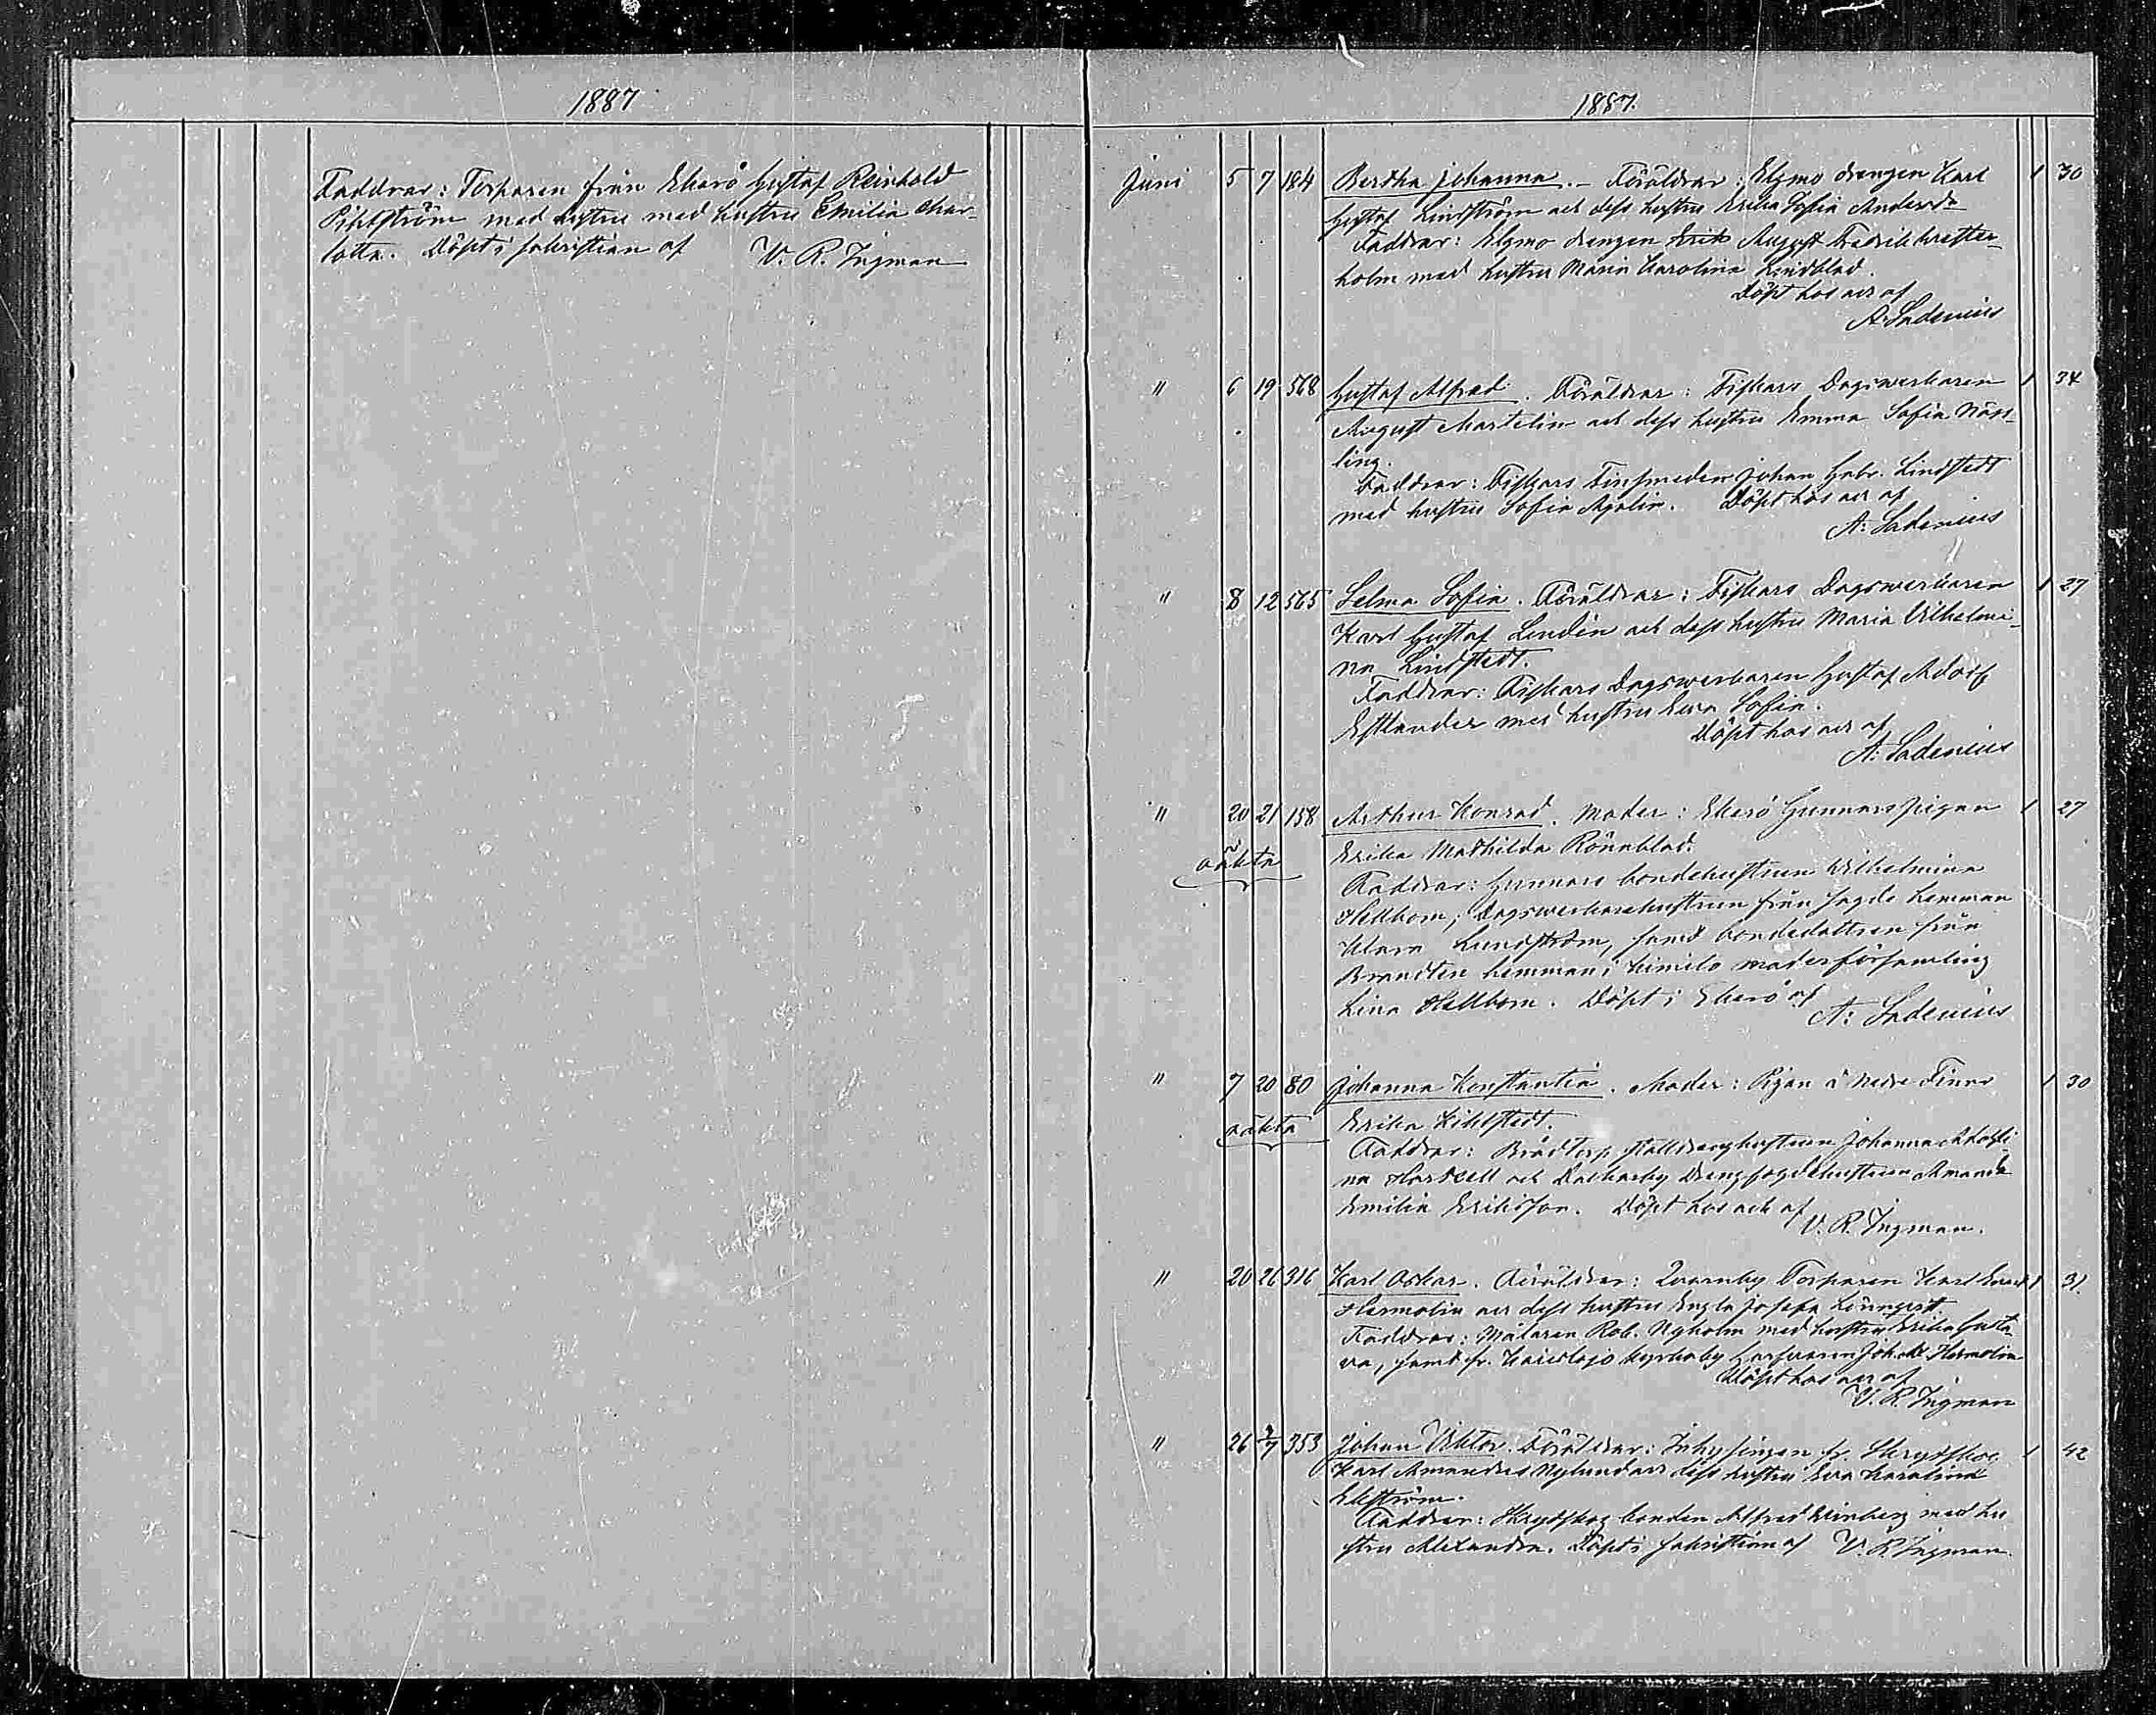 1887
Faddrar: Torparen från Ekerö Gustaf Reinhold
Pihlström med hustru med hustru Emilia Char-
lotta. Döpt i sakristian af V. R. Ingman
1887.
Juni 5 7 184 Bertha Johanna. - Föräldrar: Elgmo drengen Karl 1 30
Gustaf Lindström och dess hustru Erika Sofia Andersdr
Faddrar: Elgmo drengen Erik August Fredrik
holm med hustru Maria Karolina Lindblad.
Döpt hos och af
A: Sadenius
" 6 19 568 Gustaf Alfred. Föräldrar: Fiskars Dagsverkaren 1 34
August Martelin och dess hustru Emma Sofia Näss-
ling.
Faddrar: Fiskars Finsmeden Johan Gabr. Lindstedt
med hustru Sofia Apolin. Döpt hos och af
A: Sadenius
" 8 12 565 Selma Sofia. Föräldrar: Fiskars Dagsverkaren 1 27
Karl Gustaf Lindén och dess hustru Maria Vilhelmi-
na Lindstedt.
Faddrar: Fiskars Dagsverkaren Gustaf Adolf
Estlander med hustru Eva Sofia.
Döpt hos och af
A: Sadenius
" 20 21 158 Arthur Konrad. Moder: Ekerö Gunnars pigan 1 27
oäkta Erika Mathilda Rönnblad.
Faddrar: Gunnars bondehustrun Wilhelmina
Hellbom; Dagsverkarehustrun från sagde hemman
Klara Lundström, samt bondedottren från
Brandten hemman i Kimito moderförsamling
Lina Hellbom. Döpt i Ekerö af
A: Sadenius
" 7 20 80 Johanna Konstantia. Moder: Pigan å Nedre Finno 1 30
oäkta Erika Kihlstedt.
Faddrar: Brödtorp stalldrenghustrun Johanna Adolfi-
na Hartzell och Dalkarby Drengfogdehustrun Amanda
Emilia Eriksson. Döpt hos och af
V. R. Ingman.
" 20 26 316 Karl Oskar. Föräldrar: Qvarnby Torparen Karl 1 31.
Hermolin och dess hustru Engla Josefa Linnqvist.
Faddrar: Målaren Rob. Nyholm med hustru Erika Gusta-
va, samt fr. Karislojo kyrkoby Joh. Hermolin
Döpt hos och af
V. R. Ingman
" 26 3/7 353 Johan Viktor. Föräldrar: Inhysingen fr. Skrydskog 1 42
Karl Amandus Nylund och dess hustru Eva Karolina
Ekström.
Faddrar: Skrydskog bonden Alfred med hu
stru Alexandra. Döpt i sakristian af V. R. Ingman.